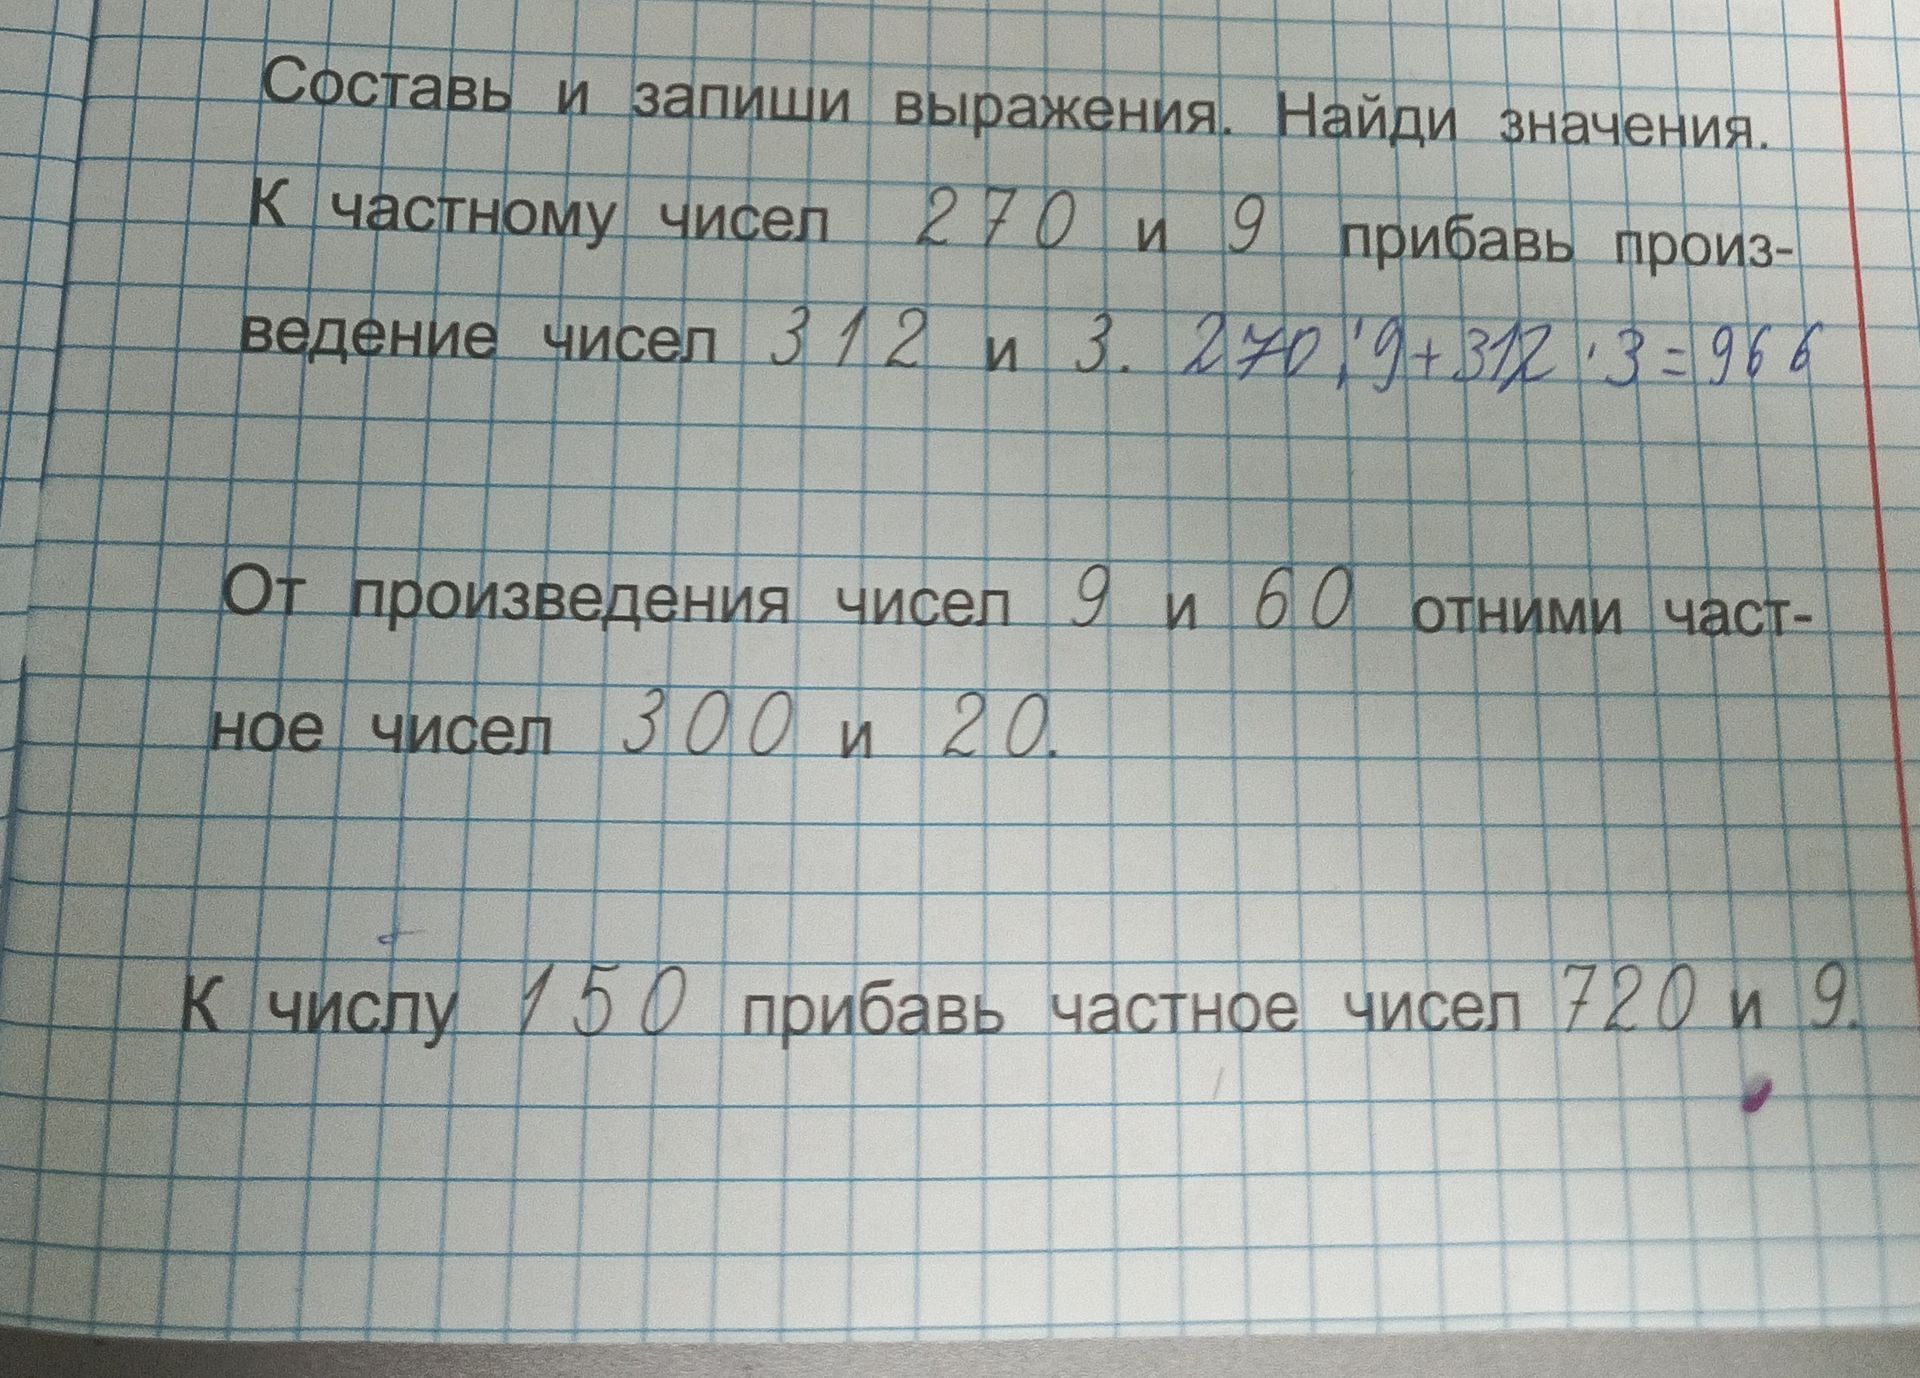 Составь и запиши выражения. Найди значения.
К частному чисел 270 и 9 прибавь произ-
ведение чисел 312 и 3. 270:9+312·3=966
От произведения чисел 9 и 60 отними част-
ное чисел 300 и 20.
К числу 150 прибавь частное чисел 720 и 9.